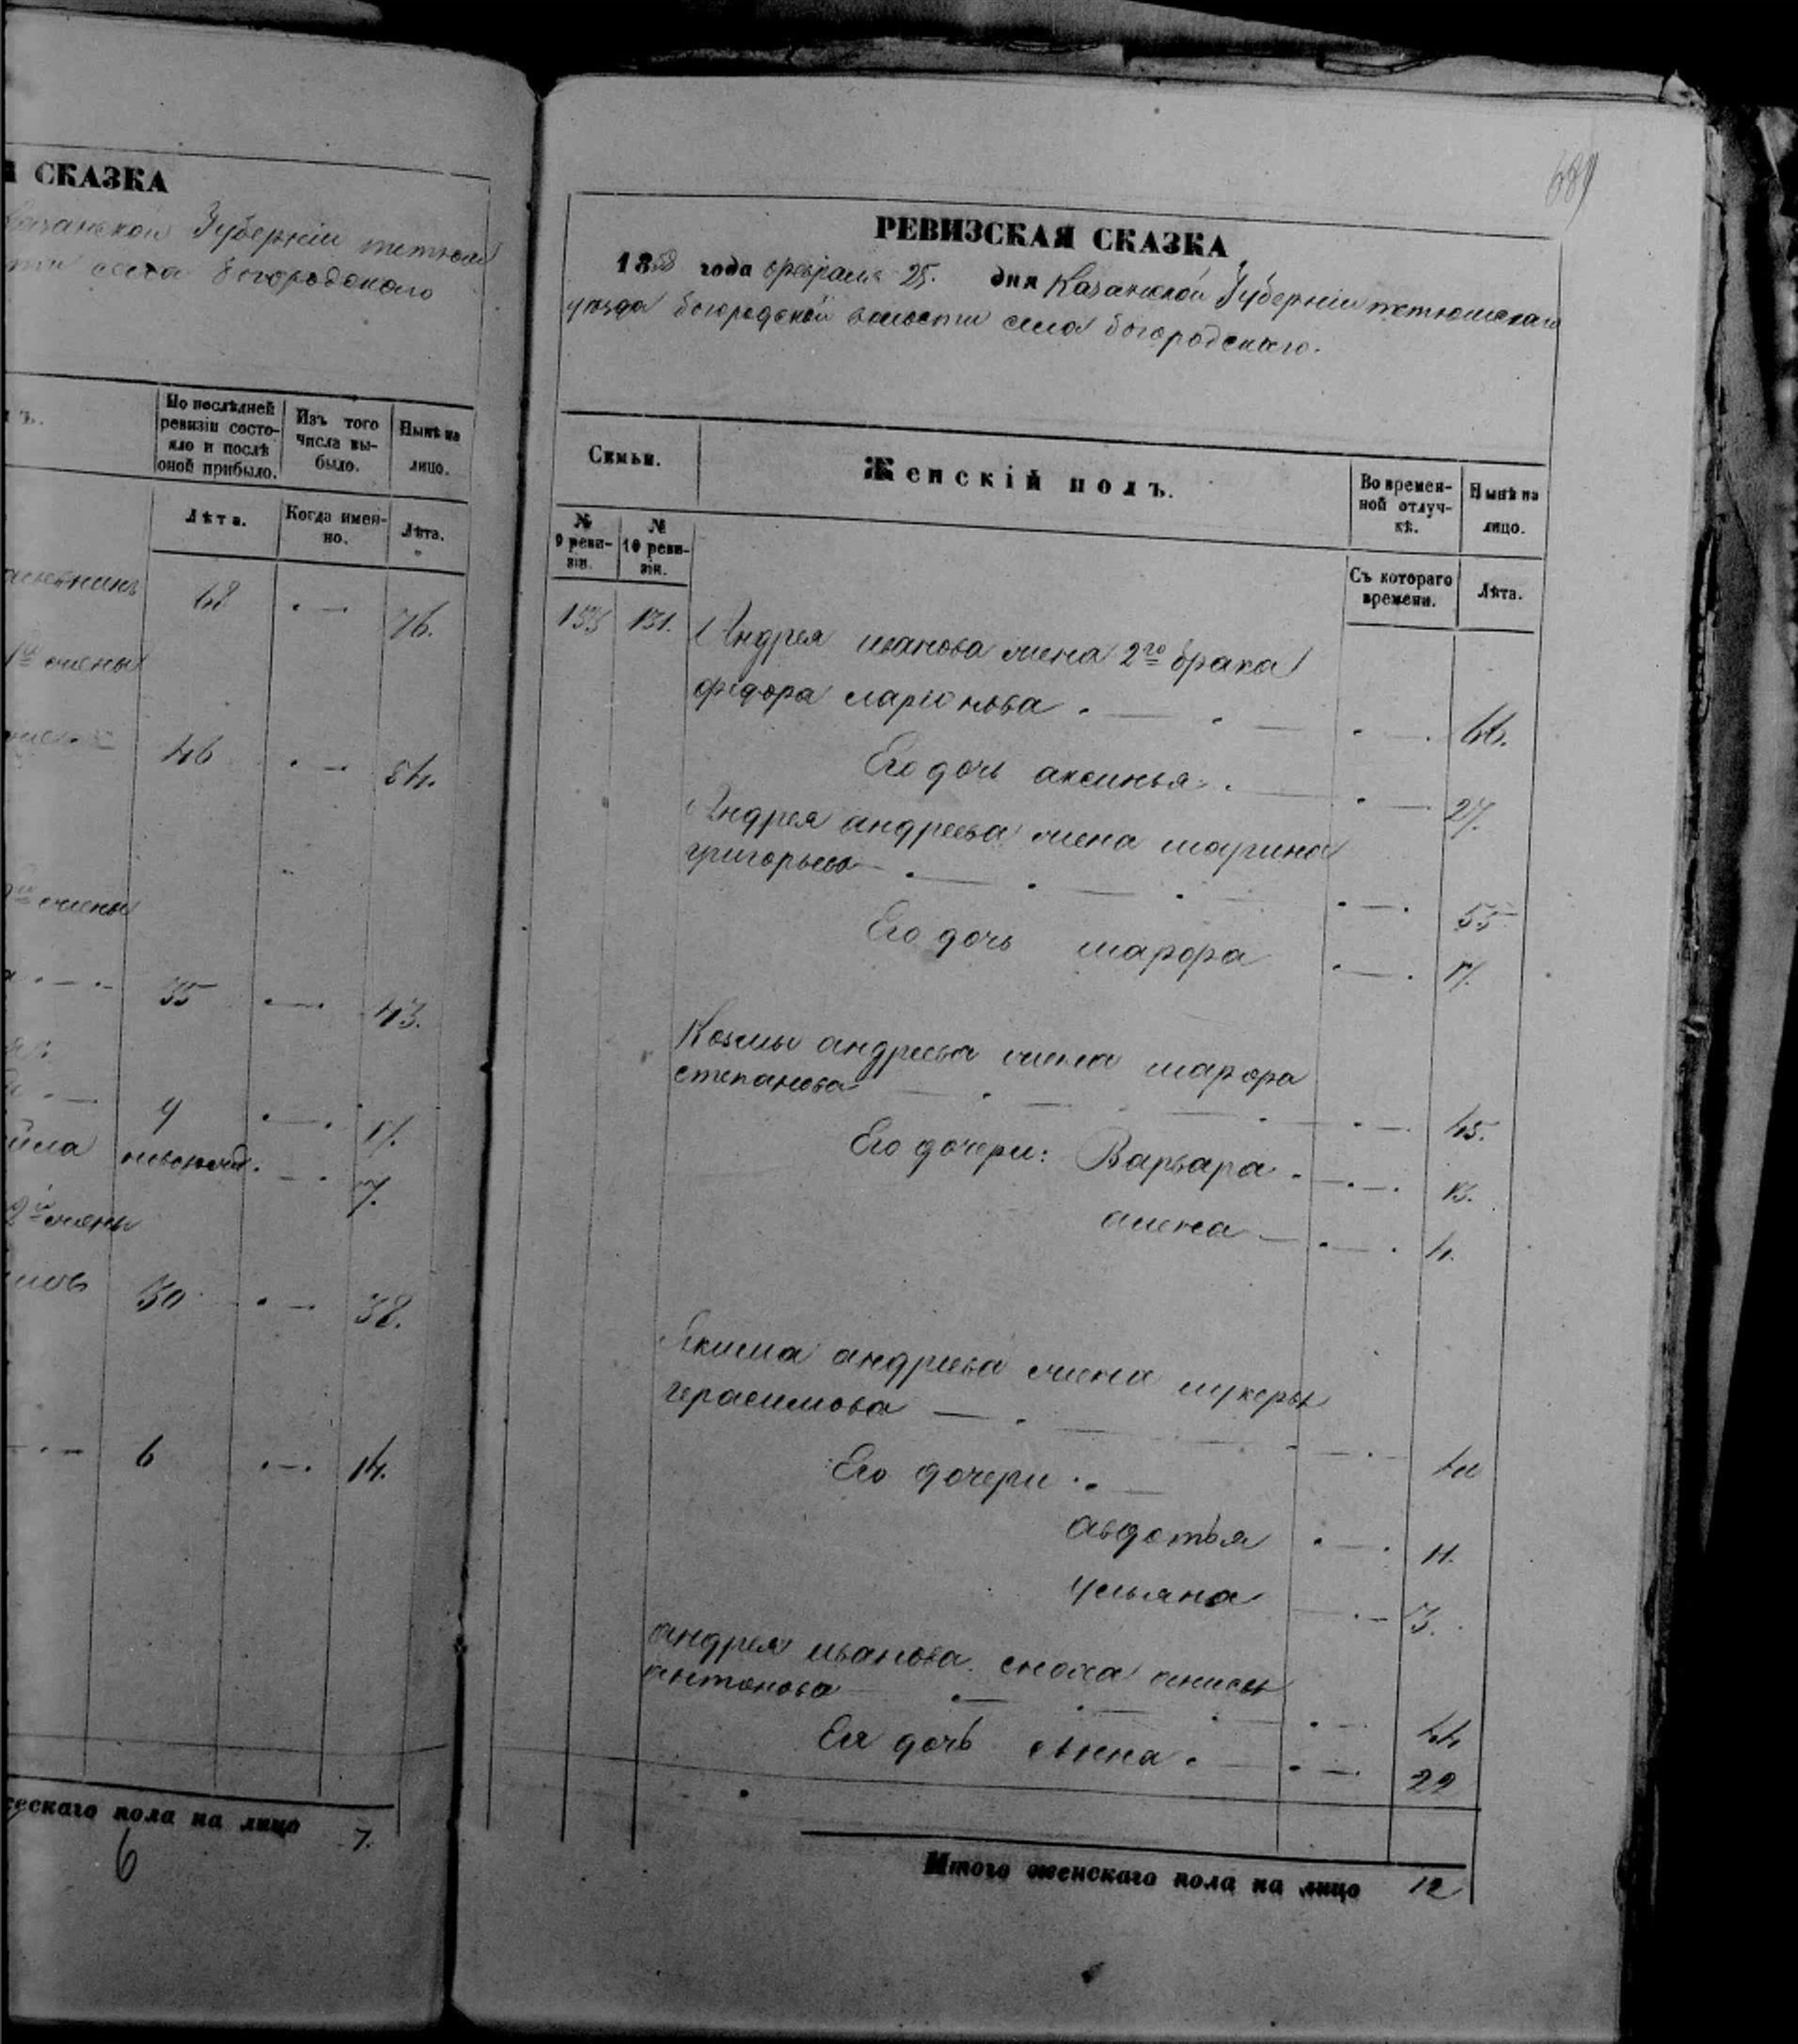 СКАЗКА
Казанской Губерніи тетюш
села богородскаго
По послѣдней
ревизіи состо-
яло и послѣ
оной прибыло.
Изъ того
числа вы-
было.
Нынѣ на
лицо.
ъ.
Лѣта.
Когда имен-
но.
Лѣта.
68 76.
жены
46 54.
жены
35 43.
9 17.
7.
2й жены
30 38.
6 14.
ескаго пола на лицо 7.
6
РЕВИЗСКАЯ СКАЗКА
1858 года февраля 25. дня Казанской Губерніи тетюшскаго
уезда богородской волости села богородскаго.
Семьи.
Женскій полъ.
Во времен-
ной отлуч-
кѣ.
Нынѣ на
лицо.
№
9 реви-
зіи.
№
10 реви-
зіи.
Съ котораго
времени.
Лѣта.
131. Андрея иванова жена 2го брака
федора ларіонова 66.
Его дочь аксинья 27.
Андрея андреева жена
григорьева 55
Его дочь марфра 17.
Козмы андреева жена марфра
степанова 45.
Его дочери: Варвара 13.
алена 4.
Якима андреева жена лукерья
герасимова 40
Его дочери
авдотья 11.
ульяна 3.
андрея иванова сноха анисья
антонова 44
Ея дочь анна 22
Итого женскаго пола на лицо 12